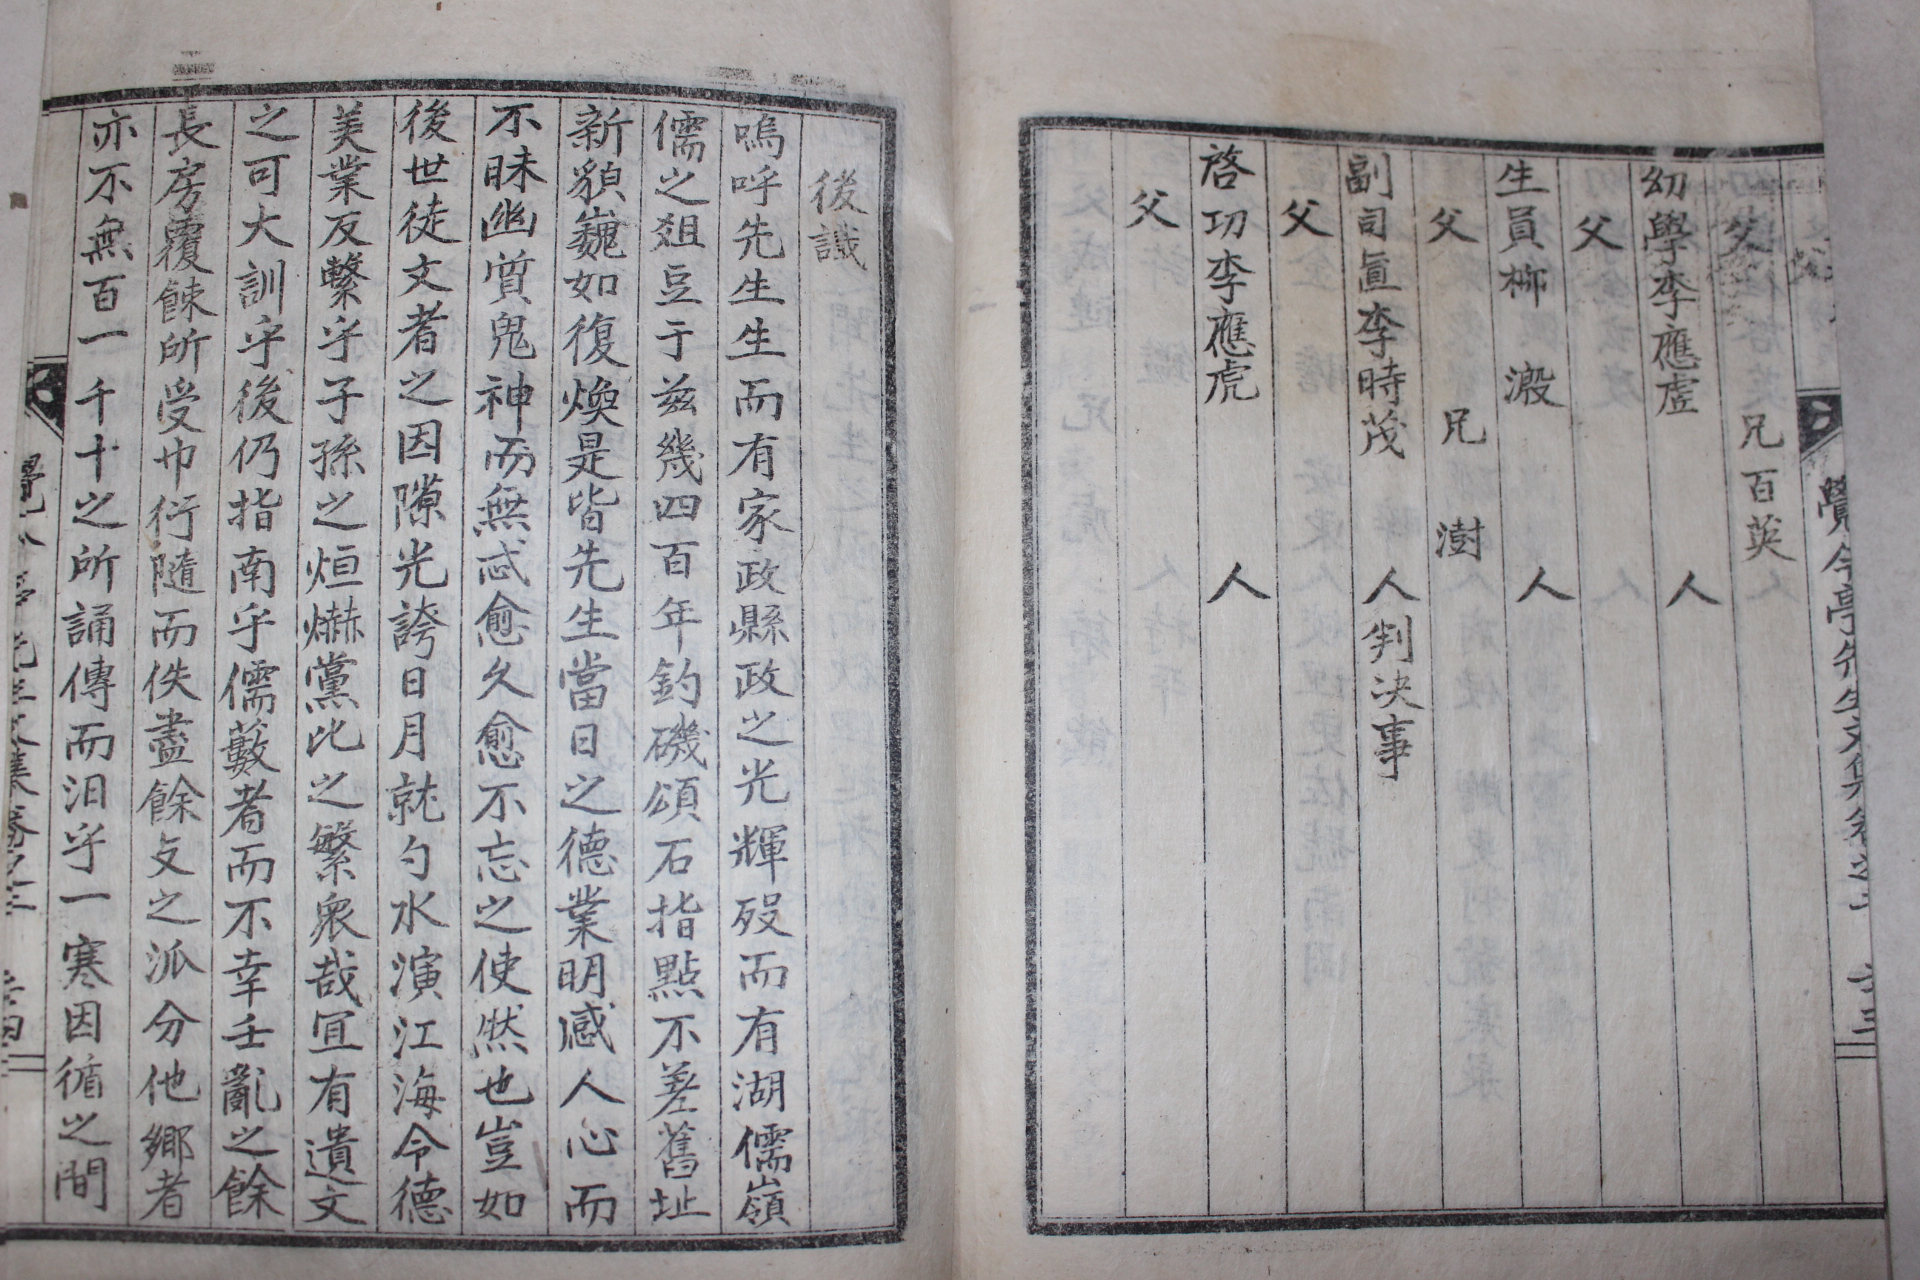 覺今亭先生文集卷之二
父 兄百英
幼學李應虗 人
父
生員柳 潊 人
父 兄 澍
副司直李時茂 人判决事
父
啓功李應虎 人
父
後識
嗚呼先生生而有家政縣政之光輝歿而有湖儒嶺
儒之爼豆于玆幾四百年釣磯頌石指點不差舊址
新貌巍如復煥是皆先生當日之德業明感人心而
不昧幽質鬼神而無忒愈久愈不忘之使然也豈如
後世徒文者之因隙光誇日月就勺水演江海令德
美業反繫乎子孫之烜爀黨比之繁衆哉宜有遺文
之可大訓乎後仍指南乎儒藪者而不幸壬亂之餘
長房覆餗所受巾衍隨而佚盡餘攴之派分他鄉者
亦不無百一千十之所誦傳而汨乎一寒因循之間